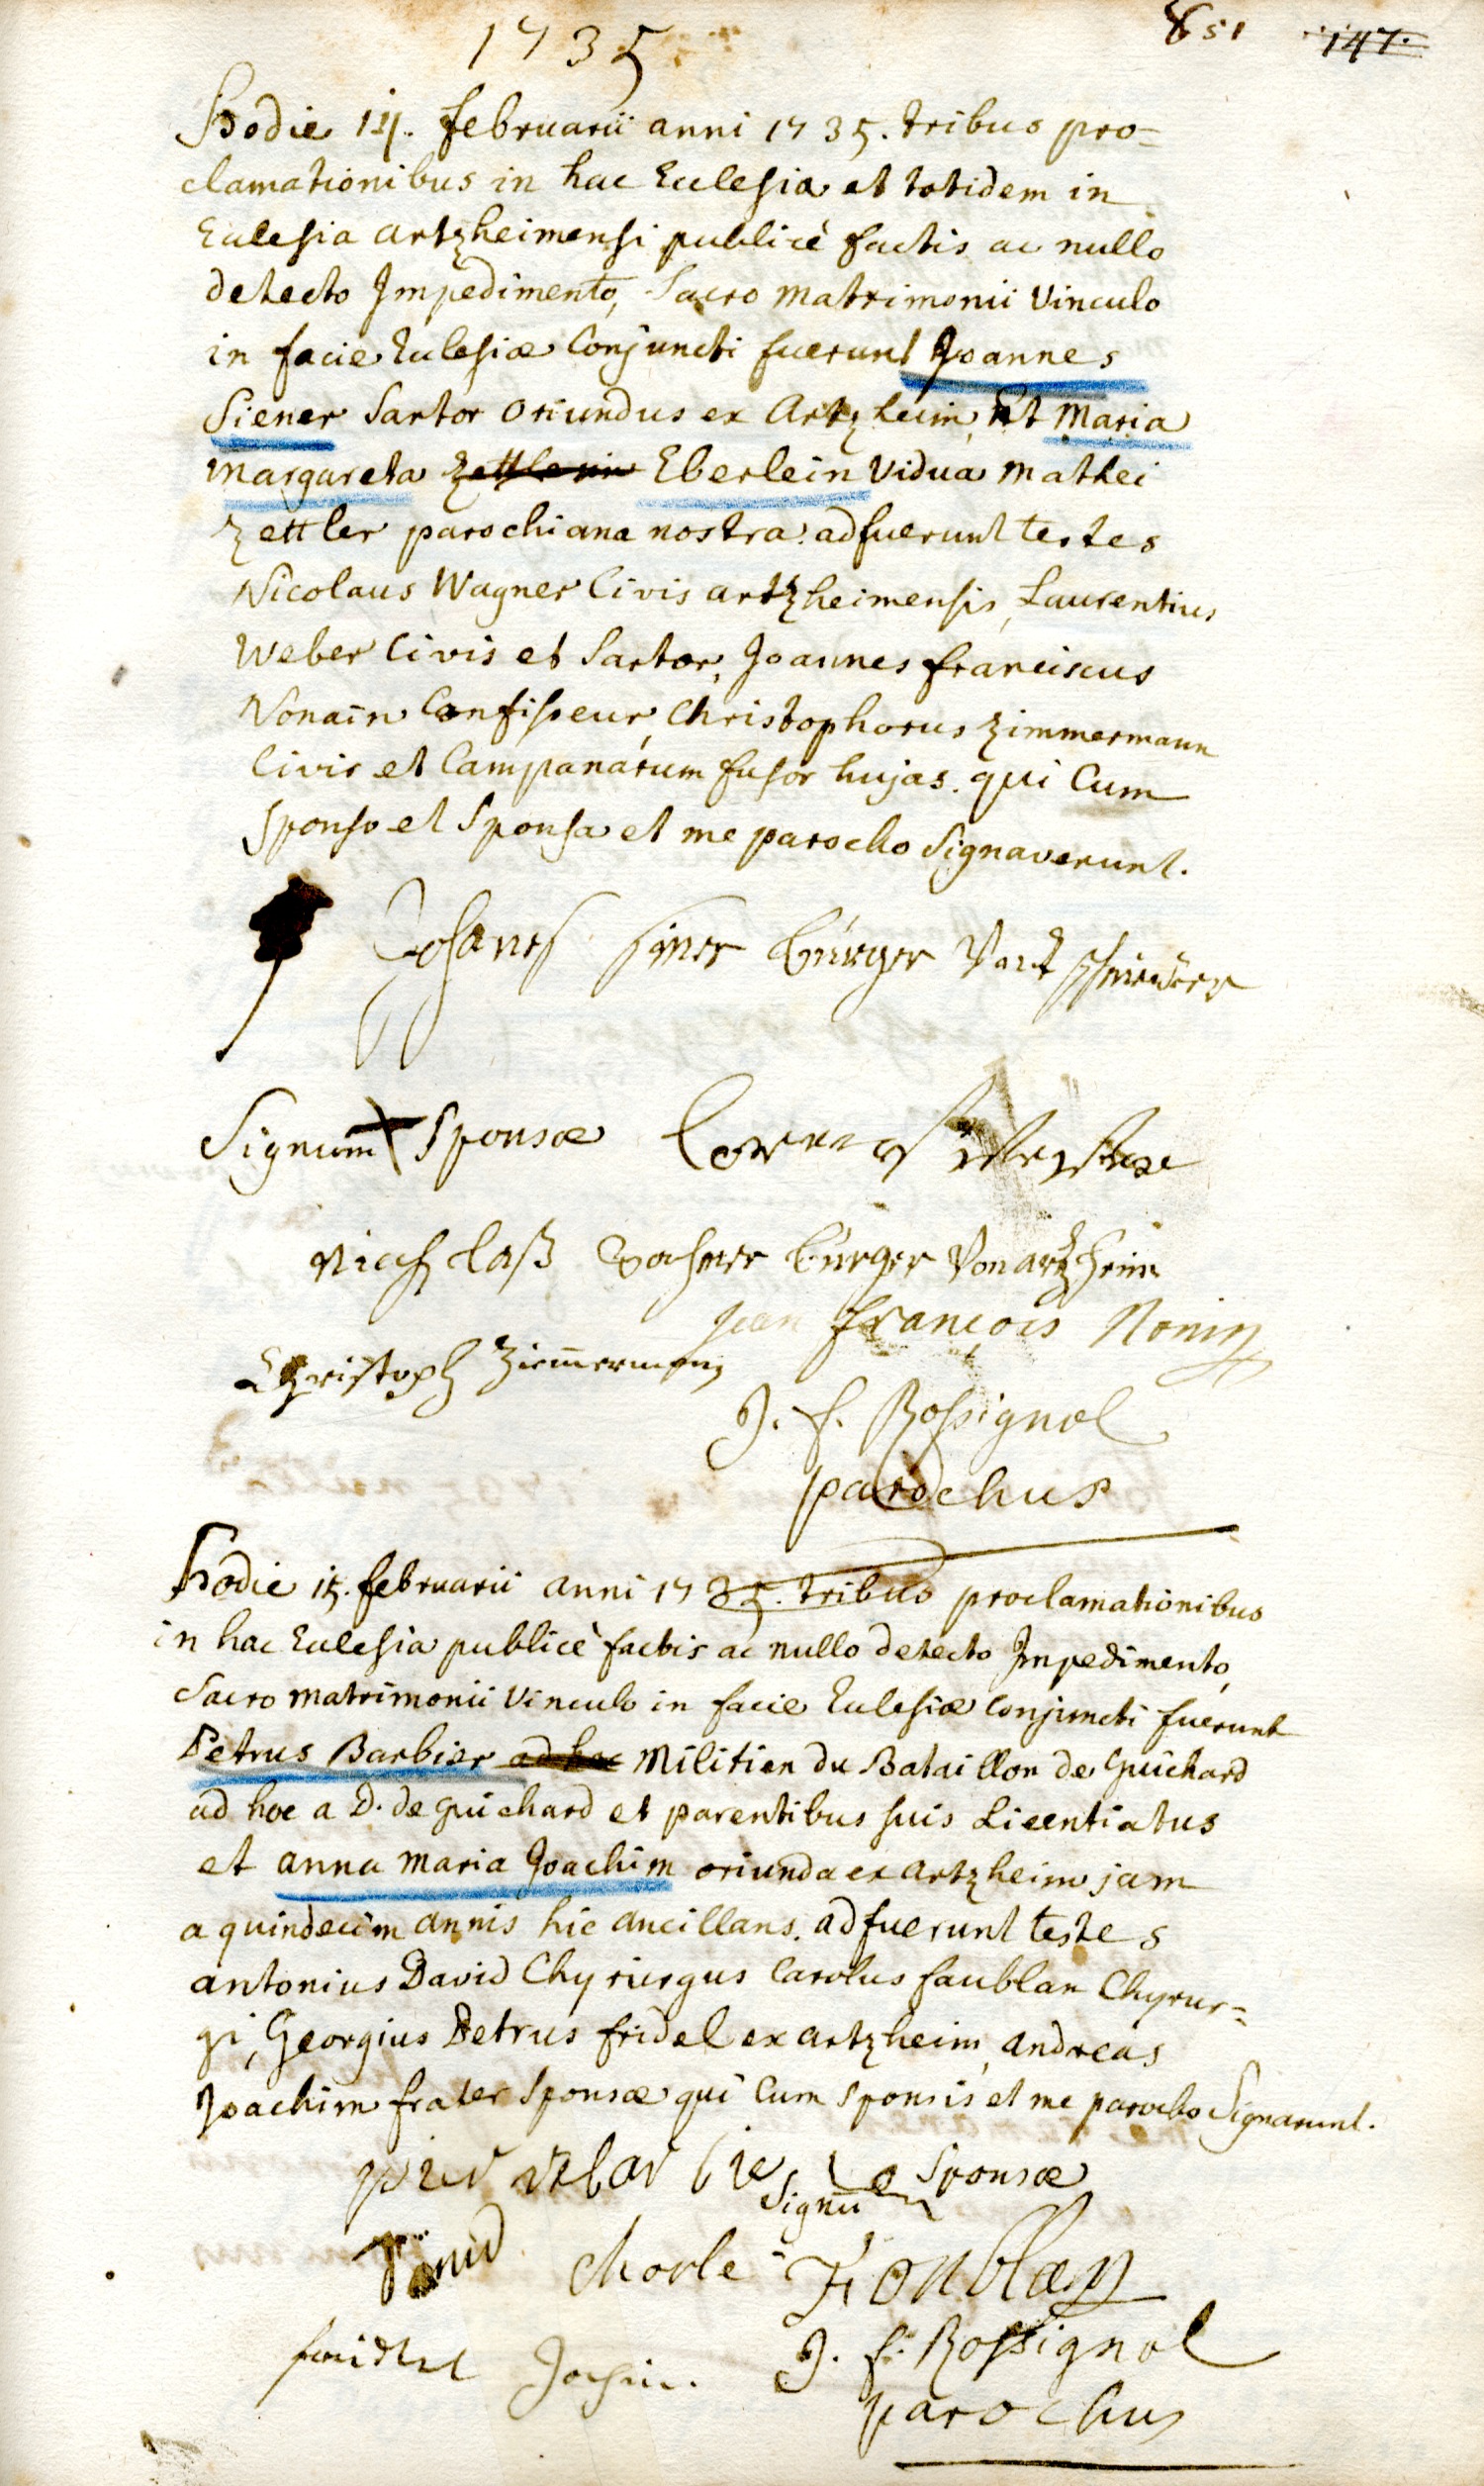 1735
851 147.
Hodie 14. februarii anni 1735. tribus pro=
clamationibus in hac Ecclesia et totidem in
Ecclesia artzheimensi publicè factis ac nullo
detecto Impedimento, Sacro matrimonii Vinculo
in facie Ecclesiæ Conjuncti fuerunt Joannes
Siener Sartor oriundus ex Artzheim, et Maria
Margareta Zettlerin Eberlein Vidua Mathei
Zettler parochiana nostra. adfuerunt testes
Nicolaus Wagner Civis artzheimensis, Laurentius
Weber Civis et Sartor, Joannes franciscus
Nonain Confisseur, Christophorus Zimmermann
Civis et Campanarum fusor hujas. qui Cum
Sponso et Sponsa et me parocho Signaverunt.
Johanes siner bürger
Signum Sponsæ
bürger Von artzheim
jean francois Nonin
Christoph Zimmermann
J. f. Rossignol
parochus
Hodie 15. februarii anni 1735. tribus proclamationibus
in hac Ecclesia publicè factis ac nullo detecto Impedimento,
Sacro matrimonii Vinculo in facie Ecclesiæ conjuncti fuerunt
Petrus Barbier ad hoc Militien du Bataillon de Guichard
ad hoc a D. de Guichard et parentibus suis Licentiatus
et anna maria Joachim oriunda ex artzheim jam
a quindecim annis hic ancillans. adfuerunt testes
antonius David Chyrurgus Carolus faublan Chyrur=
gi, Georgius Petrus fridel ex artzheim, andreas
Joachim frater Sponsæ qui Cum Sponsis et me parocho Signarunt.
Signū Sponsæ
David Charle Fonblan
J. f. Rossignol
parochus